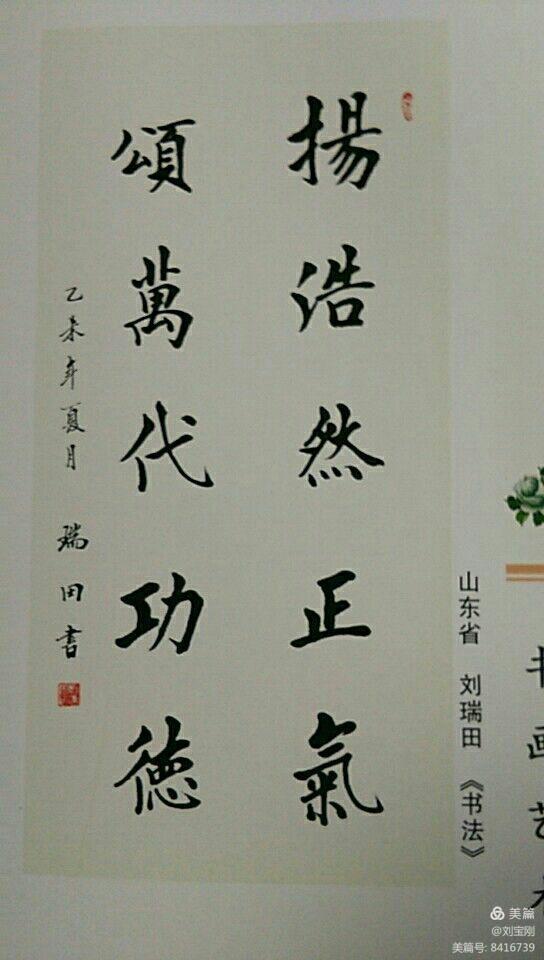 揚浩然正氣
頌萬代功德
乙未年夏月 瑞田書
山东省 刘瑞田 《书法》
书画艺术
美篇
@刘宝刚
美篇号: 8416739